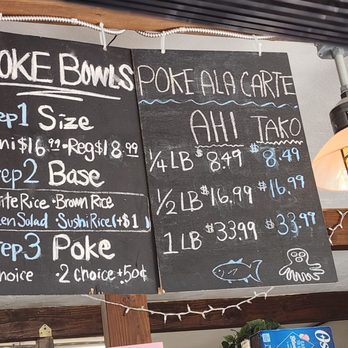 POKE BOWLS
ep1 Size
ni $16.99 - Reg $18.99
ep2 Base
ite Rice · Brown Rice
en Salad · Sushi Rice (+$1)
ep3 Poke
hoice · 2 choice +50¢
POKE ALA CARTE
AHI TAKO
1/4 LB $8.49 $8.49
1/2 LB $16.99 $16.99
1 LB $33.99 $33.99